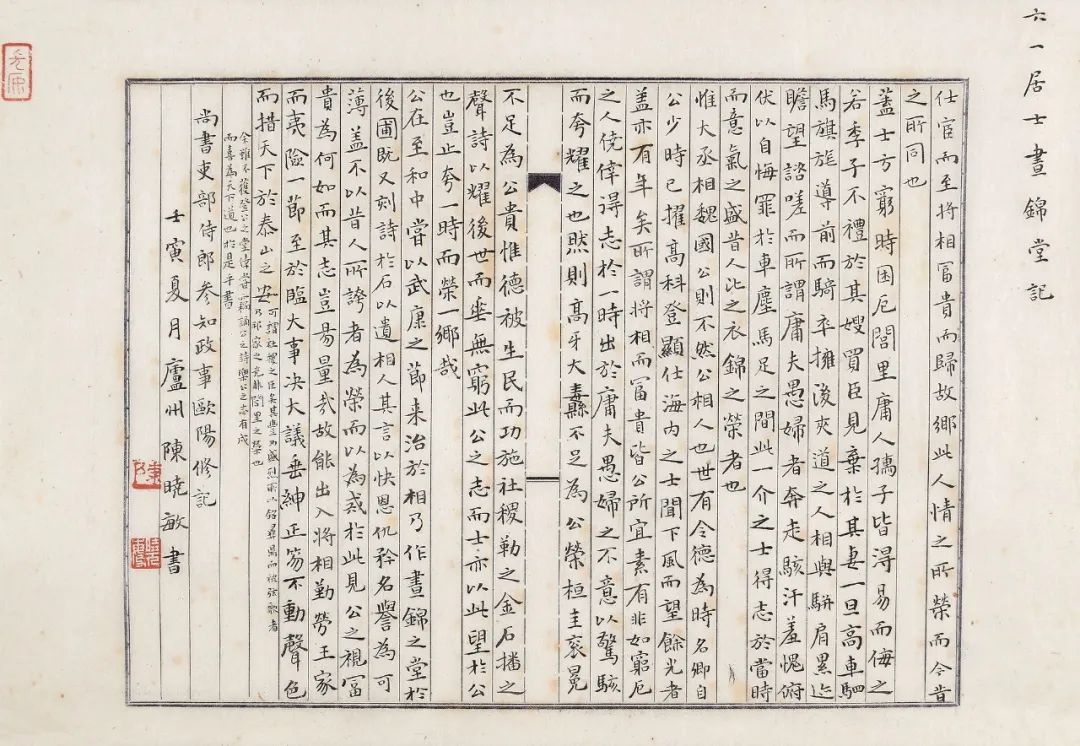 六一居士晝錦堂記
仕宦而至將相冨貴而歸故鄉此人情之所榮而今昔
之所同也
蓋士方窮時困厄閭里庸人孺子皆得易而侮之
若季子不禮於其嫂買臣見棄於其妻一旦高車駟
馬旗旄導前而騎卒擁後夾道之人相與駢肩累迹
瞻望諮嗟而所謂庸夫愚婦者奔走駭汗羞愧俯
伏以自悔罪於車塵馬足之間此一介之士得志於當時
而意氣之盛昔人比之衣錦之榮者也
惟大丞相魏國公則不然公相人也世有令德為時名卿自
公少時已擢高科登顯仕海內之士聞下風而望餘光者
蓋亦有年矣所謂將相而冨貴皆公所宜素有非如窮厄
之人僥倖得志於一時出於庸夫愚婦之不意以驚駭
而夸耀之也然則高牙大纛不足為公榮桓圭袞冕
不足為公貴惟德被生民而功施社稷勒之金石播之
聲詩以耀後世而垂無窮此公之志而士亦以此望於公
也豈止夸一時而榮一鄉哉
公在至和中嘗以武康之節来治於相乃作晝錦之堂於
後圃既又刻詩於石以遺相人其言以快恩仇矜名譽為可
薄蓋不以昔人所誇者為榮而以為戒於此見公之視冨
貴為何如而其志豈易量哉故能出入將相勤勞王家
而夷險一節至於臨大事決大議垂紳正笏不動聲色
而措天下於泰山之安
可謂社稷之臣矣其豐功盛烈所以銘彝鼎而被弦歌者
乃邦家之光非閭里之榮也
余雖不獲登公之堂幸嘗竊誦公之詩樂公之志有成
而喜為天下道也於是乎書
尚書吏部侍郎參知政事歐陽修記
壬寅夏月廬州陳曉敏書